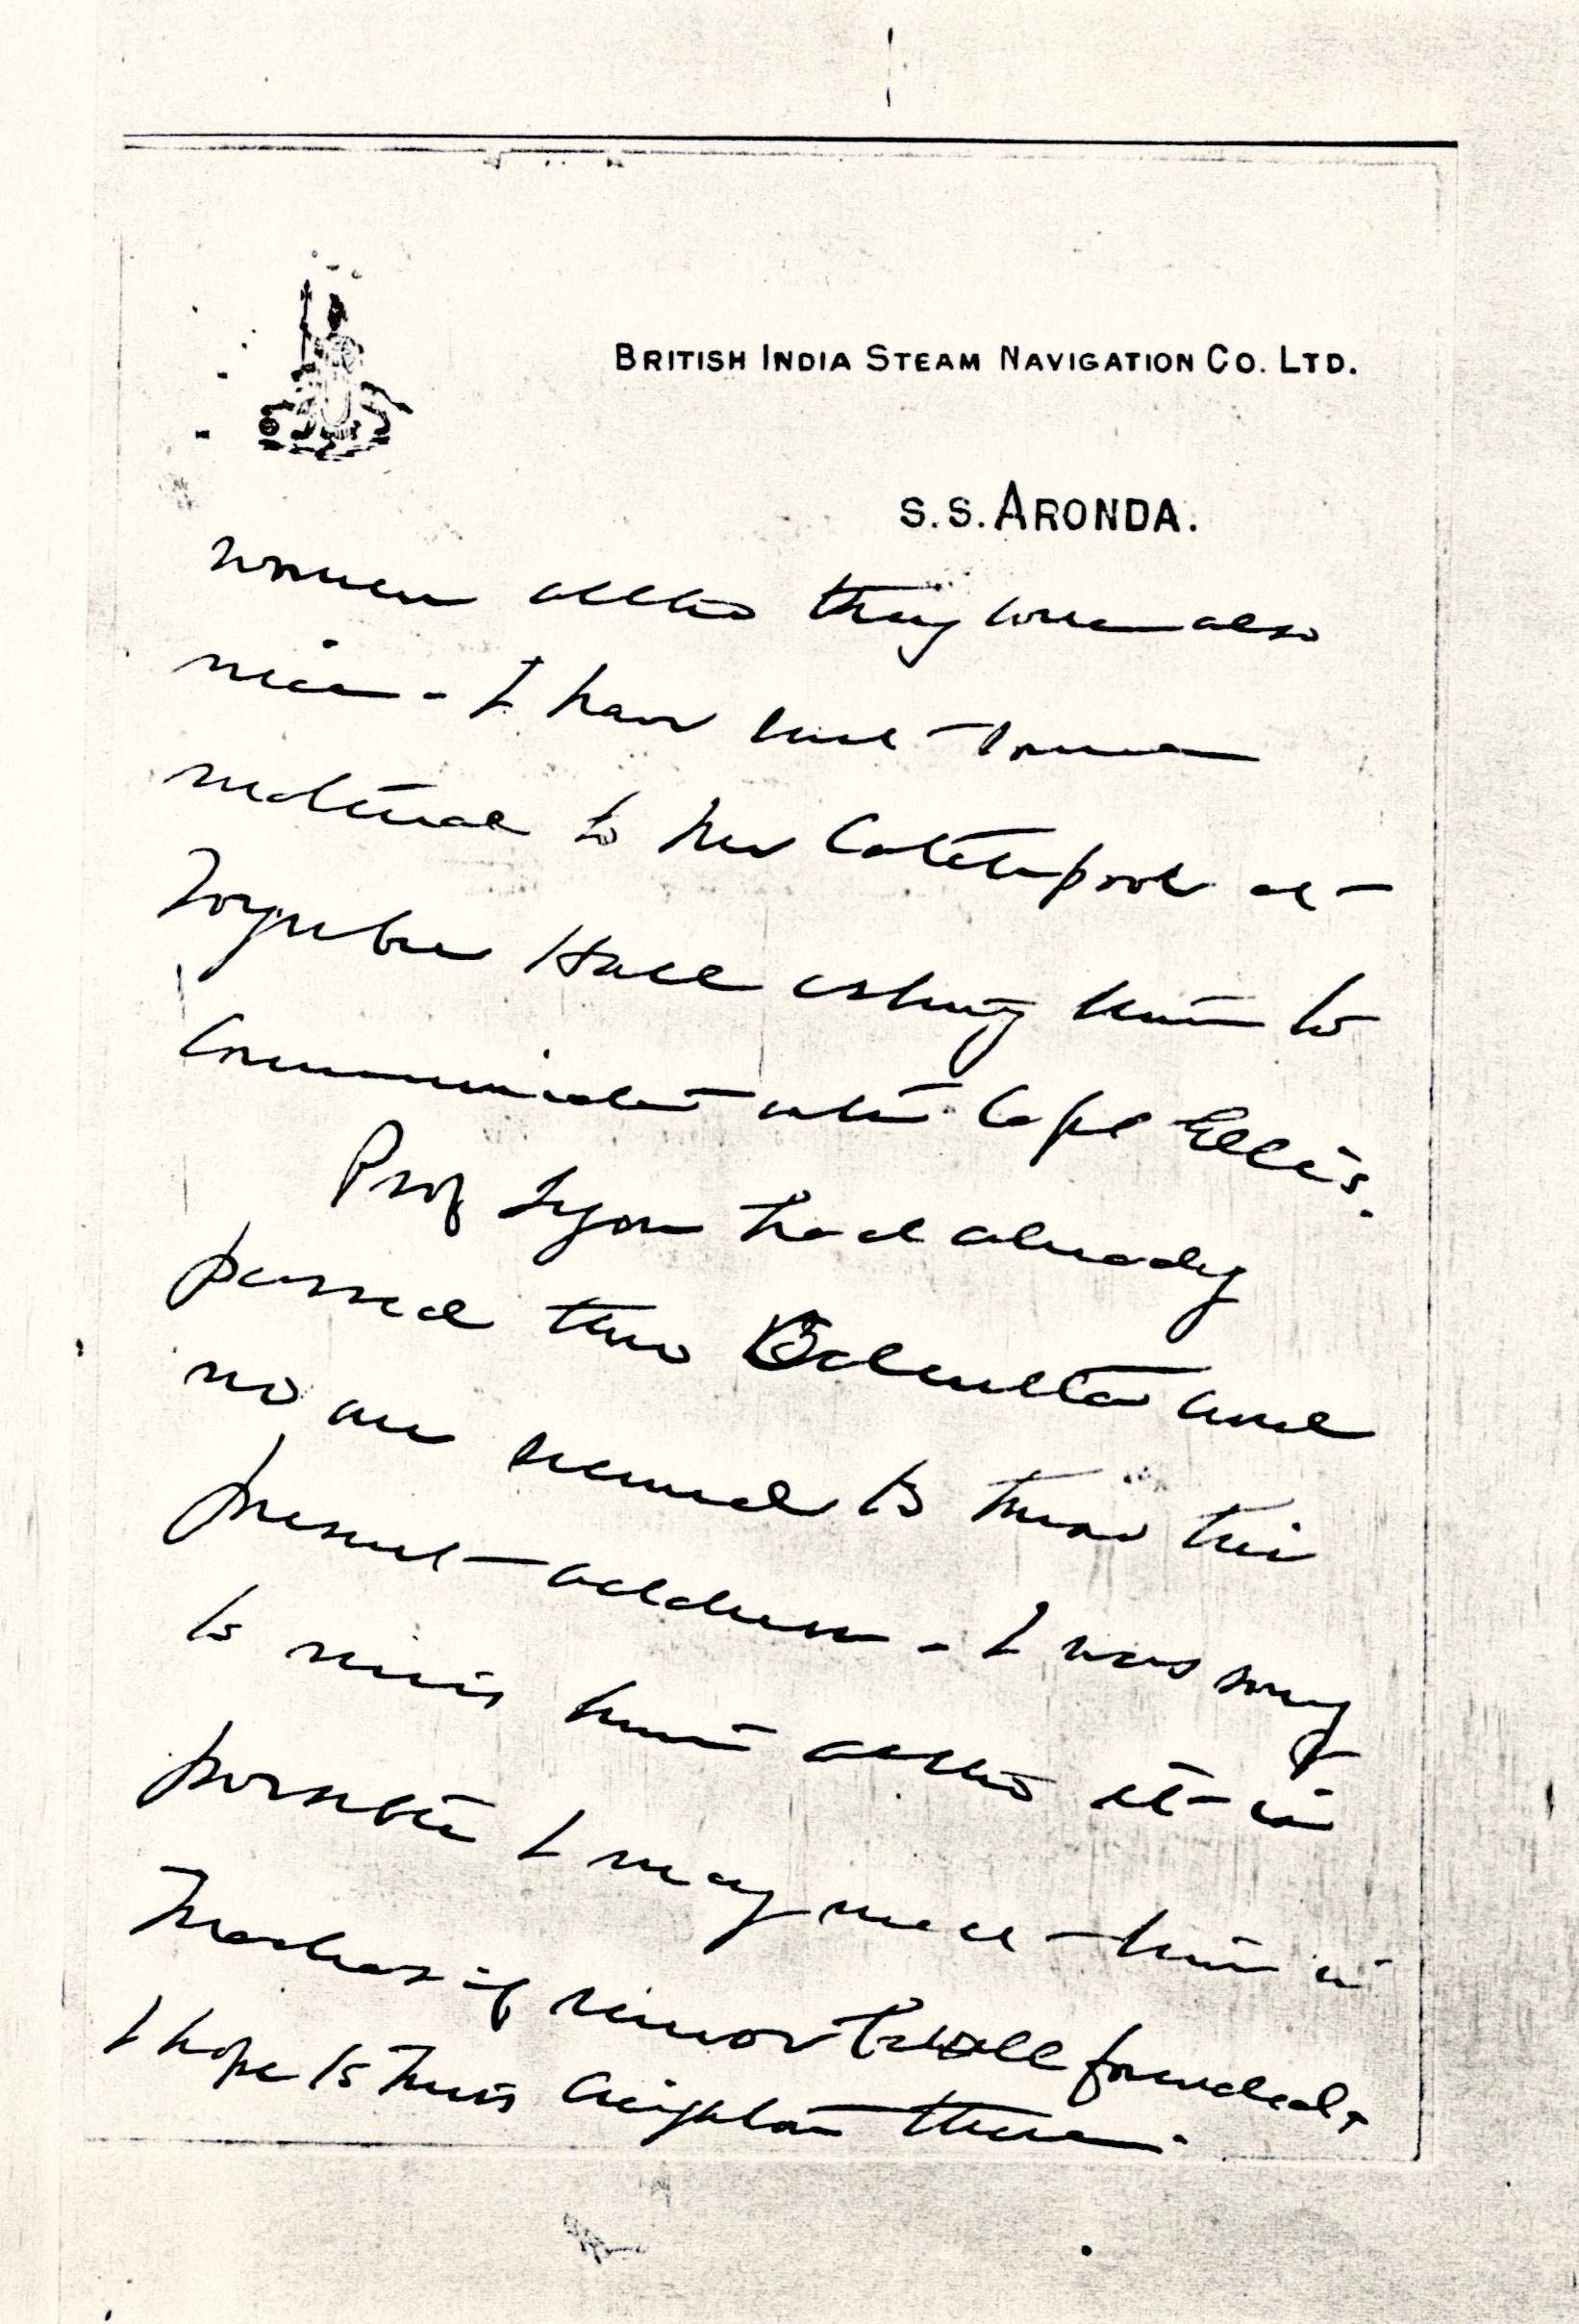 BRITISH INDIA STEAM NAVIGATION CO. LTD.
S.S. ARONDA.
women altho they were also
nice - I have sent some
material to her Catchpool at
Toynbee Hall asking him to
Communicate with Capt Ellis.
Prof Lyon had already
passed thro Calcutta and
no one seemed to know his
present address - I was sorry
to miss him altho it is
possible I may meet him in
Madras if rumor is well founded &
I hope to meet Creighton there.